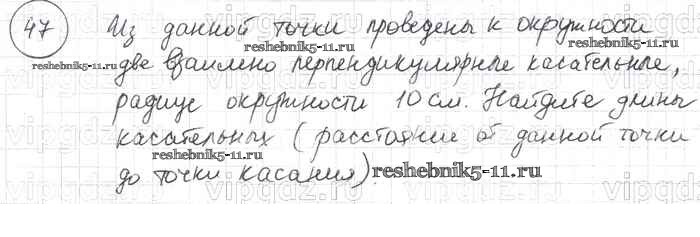 47 Из данной точки проведены к окружности
две взаимно перпендикулярные касательные,
радиус окружности 10 см. Найдите длины
касательных (расстояние от данной точки
до точки касания).
reshebnik5-11.ru
reshebnik5-11.ru
reshebnik5-11.ru
reshebnik5-11.ru
reshebnik5-11.ru